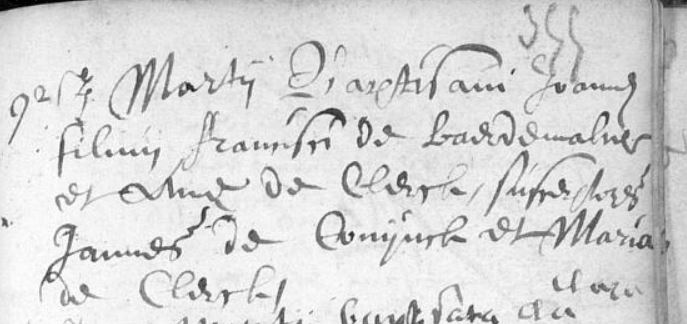 Martij Baptisavi Joannes
filium francisci de baerdemaker
et Anne de Clerck, susceptores
Jannes de Coninck et Maria
de Clerck,
baptisata